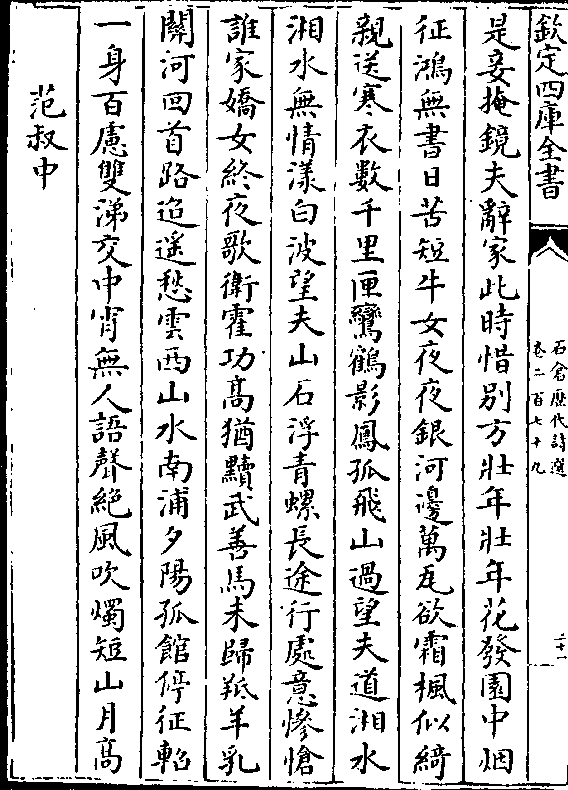 欽定四庫全書
石倉歷代詩選
卷二百七十九
二十一
是妾掩鏡夫辭家此時惜别方壯年壯年花發園中烟
征鴻無書日苦短牛女夜夜銀河邊萬瓦欲霜楓似綺
親送寒衣數千里匣鸞鶴影鳳孤飛山過望夫道湘水
湘水無情漾白波望夫山石浮青螺長途行處意慘愴
誰家嬌女終夜歌衛霍功髙猶黷武善馬未歸羝羊乳
關河回首路迢遥愁雲西山水南浦夕陽孤館停征軺
一身百慮雙涕交中宵無人語聲絶風吹燭短山月髙
范叔中